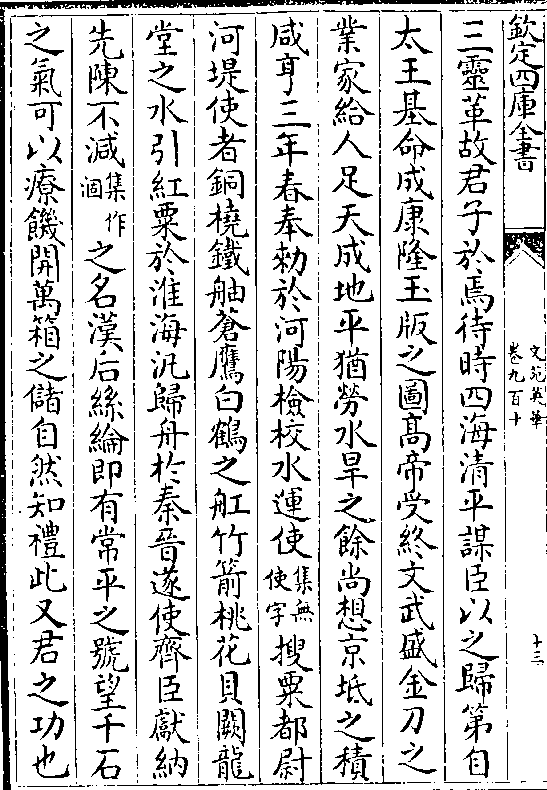 欽定四庫全書
文苑英華
卷九百十
十三
三靈革故君子於焉待時四海清平謀臣以之歸第自
太王基命成康隆玉版之圖髙帝受終文武盛金刀之
業家給人足天成地平猶勞水旱之餘尚想京坻之積
咸亨三年春奉勑於河陽檢校水運使集無使字搜粟都尉
河堤使者銅橈鐵舳蒼鷹白鶴之舡竹箭桃花貝闕龍
堂之水引紅粟於淮海汎歸舟於秦晉遂使齊臣獻納
先陳不減集作涸之名漢后絲綸即有常平之號望千石
之氣可以療饑開萬箱之儲自然知禮此又君之功也